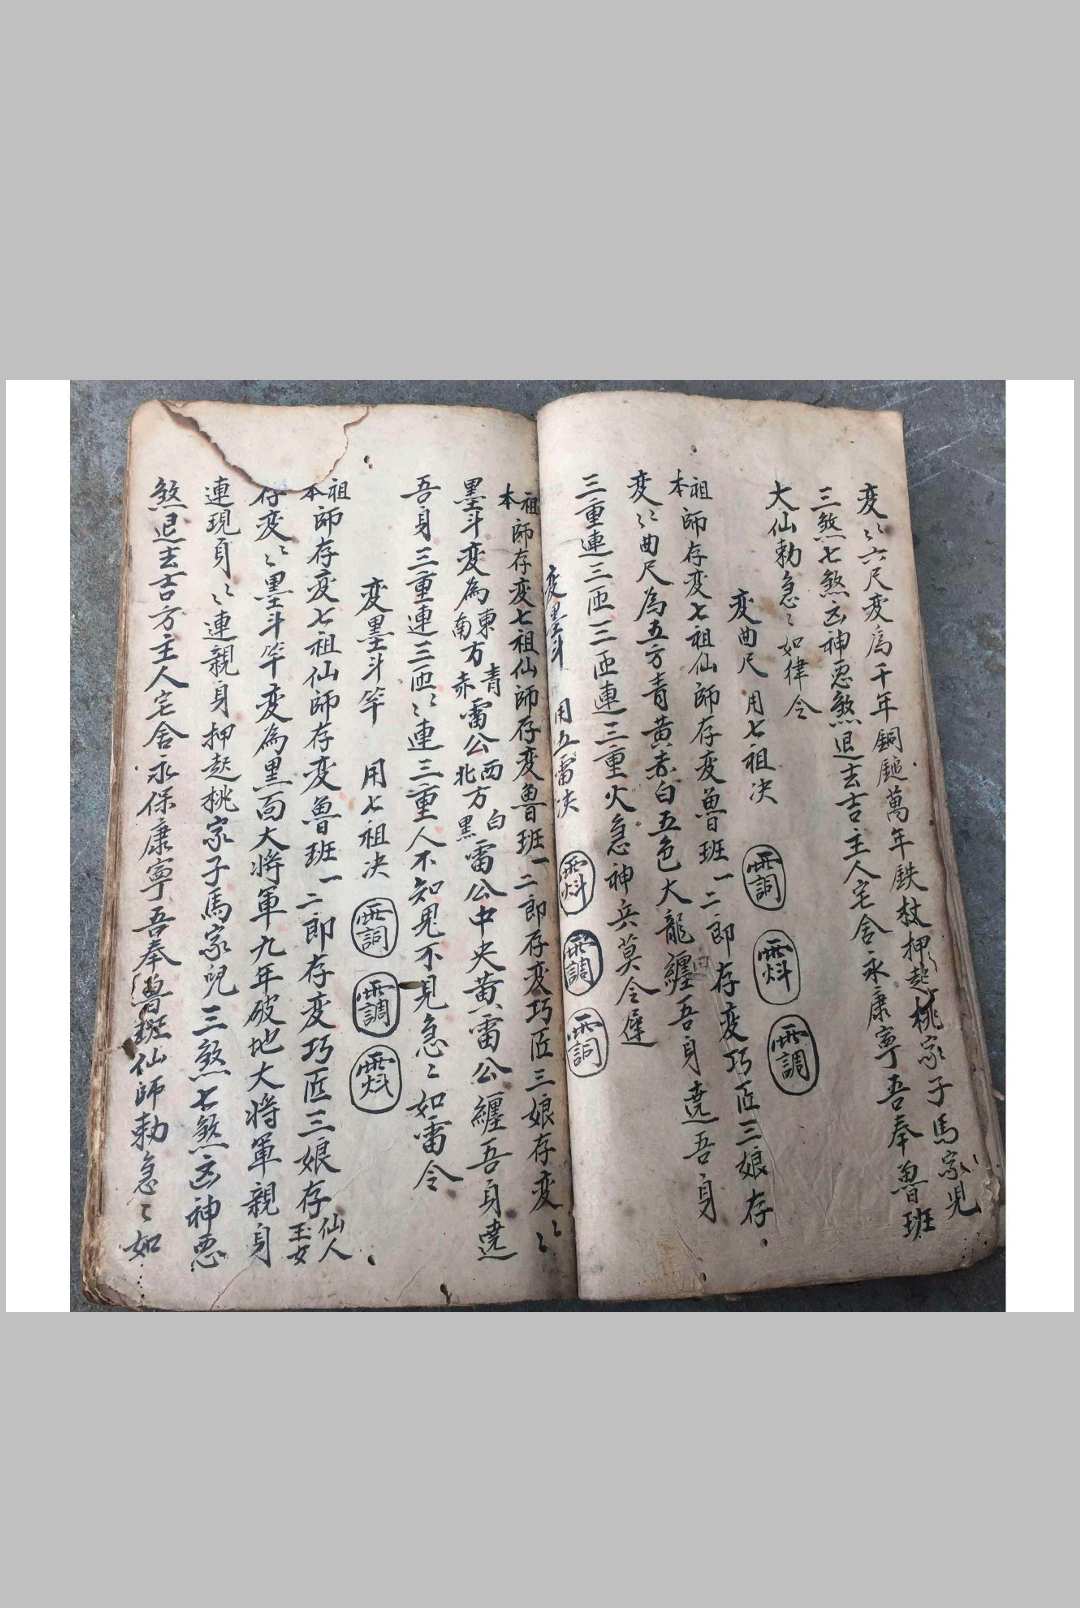 変〻六尺変為千年銅鎚萬年鉄杖押起桃家子馬家児
三煞七煞凶神恶煞退去吉主人宅舍永康寧吾奉魯班
大仙勅急〻如律令
変曲尺 用七祖决
祖本師存変七祖仙師存変魯班一二郎存変巧匠三娘存
変〻曲尺為五方青黄赤白五色大龍纏吾身遶吾身
三重連三匝三匝連三重火急神兵莫令遲
変墨斗 用五雷决
祖本師存変七祖仙師存変魯班一二郎存変巧匠三娘存変〻
墨斗変為東方青南方赤雷公西方白北方黑雷公中央黄雷公纏吾身遶
吾身三重連三匝〻連三重人不知鬼不見急〻如雷令
変墨斗竿 用七祖决
祖本師存変七祖仙師存変魯班一二郎存変巧匠三娘存仙人玉女
存変〻墨斗竿変為黑面大将軍九年破地大将軍親身
連現身〻連親身押起桃家子馬家児三煞七煞凶神恶
煞退去吉方主人宅舍永保康寧吾奉魯班仙師勅急〻如